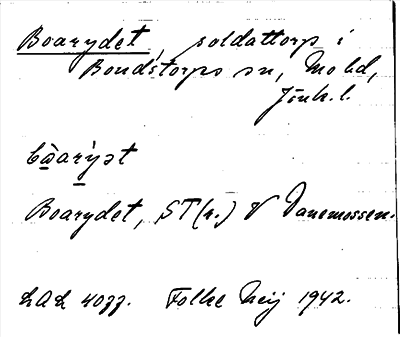 Boarydet, soldattorp i
Bondstorps sn, Mo hd,
Jönk. l.
bòarỳət
Boarydet, ST(r.) V Danemossen.
LAL 4077. Folke Neij 1942.